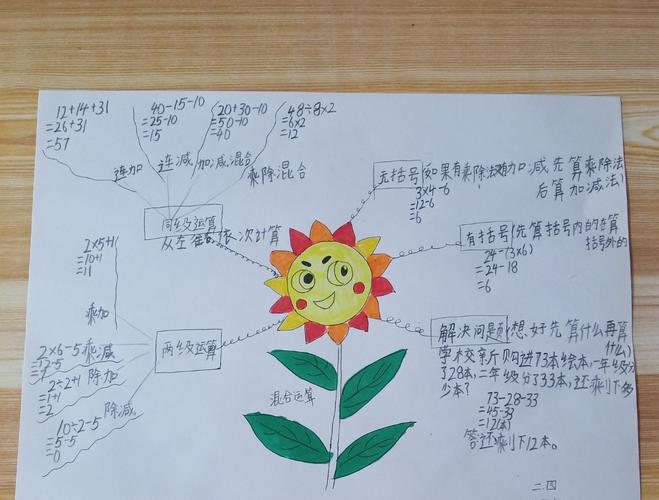 12+14+31
=26+31
=57
连加
40-15-10
=25-10
=15
连减
20+30-10
=50-10
=40
加减混合
48÷8×2
=6×2
=12
乘除混合
同级运算
从左往右依次计算
无括号(如果有乘除法和加减先算乘除法
后算加减法)
3×4-6
=12-6
=6
有括号(先算括号内的在算
括号外的
24-(3×6)
=24-18
=6
解决问题(想好先算什么再算
什么)
学校新近购进73本绘本,一年级分
了28本,二年级分了33本,还剩下多
少本?
73-28-33
=45-33
=12(本)
答还剩下12本。
两级运算
2×5+1
=10+1
=11
乘加
2×6-5 乘减
2÷2+1 除加
=1+1
=2
10÷2-5 除减
=5-5
=0
混合运算
二.四